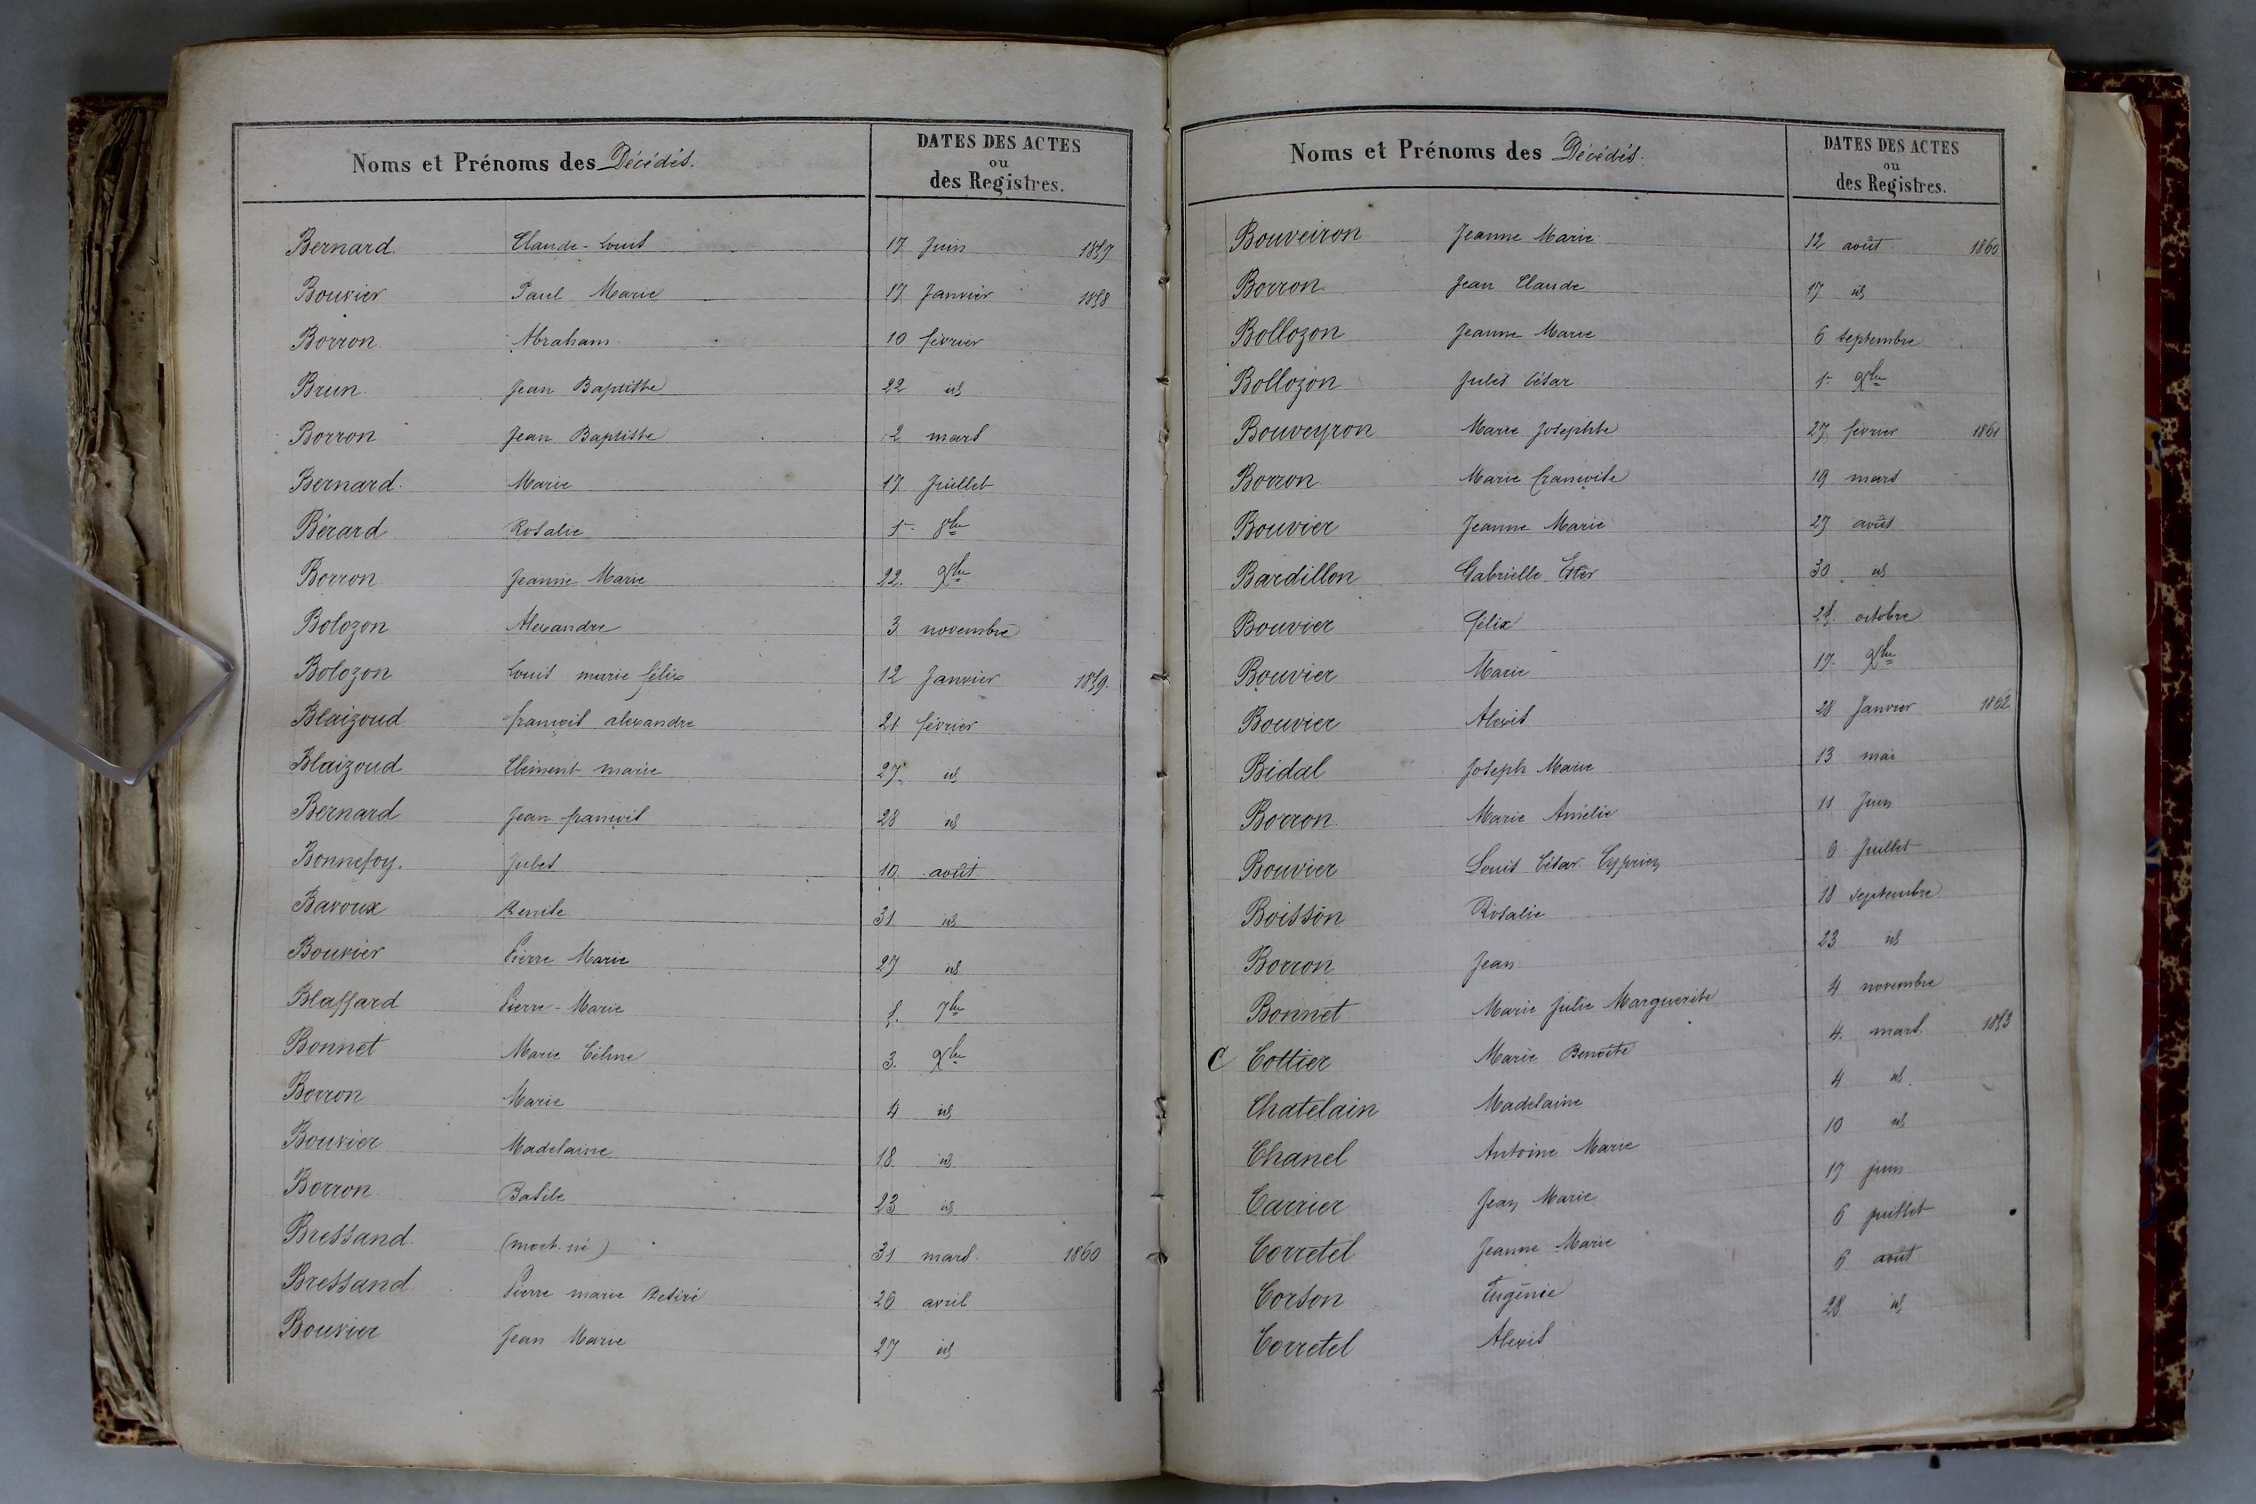 Noms et Prénoms des Décédés.
DATES DES ACTES
ou
des Registres.
Bernard Claude-Louis 17 Juin 1857
Bouvier Paul Marie 17 Janvier 1858
Borron Abraham 10 février
Brun Jean Baptiste 22 id
Borron Jean Baptiste 2 mars
Bernard Marie 17 Juillet
Bérard Rosalie 5 8bre
Borron Jeanne Marie 22 9bre
Bolozon Alexandre 3 novembre
Bolozon Louis marie félix 12 Janvier 1859.
Blaizoud françois alexandre 21 février
Blaizoud Clément marie 27 id
Bernard Jean françois 28 id
Bonnefoy. Jules 10 août
Bavoux Benite 31 id
Bouvier Pierre Marie 27 id
Blaffard Pierre-Marie 7bre
Bonnet Marie Céline 3. 9bre
Borron Marie 4 id
Bouvier Madelaine 18 id
Borron Basile 23 id
Bressand (mort-né) 31 mars 1860
Bressand Pierre marie Désiré 26 avril
Bouvier Jean Marie 27 id
Noms et Prénoms des Décédés.
DATES DES ACTES
ou
des Registres.
Bouveiron Jeanne Marie 12 août 1860
Borron Jean Claude 17 id
Bollozon Jeanne Marie 6 septembre
Bollozon Jules César 5 9bre
Bouveyron Marie Josephte 27 février 1861
Borron Marie françoise 19 mars
Bouvier Jeanne Marie 27 août
Bardillon Gabrielle Ester 30 id
Bouvier félix octobre
Bouvier Marie 17 9bre
Bouvier Alexis 28 Janvier 1862
Bidal Joseph Marie 13 mai
Borron Marie Amélie 11 Juin
Bouvier Louis César Cyprien 6 Juillet
Boisson Rosalie 18 septembre
Borron Jean 23 id
Bonnet Marie Julie Marguerite 4 novembre
C Cottier Marie Benoîte 4. mars 1853
Chatelain Madelaine 4 id.
Chanel Antoine Marie 10 id
Carrier Jean Marie 17 juin
Corretel Jeanne Marie 6 juillet
Corson Eugénie 6 août
Corretel Alexis 28 id